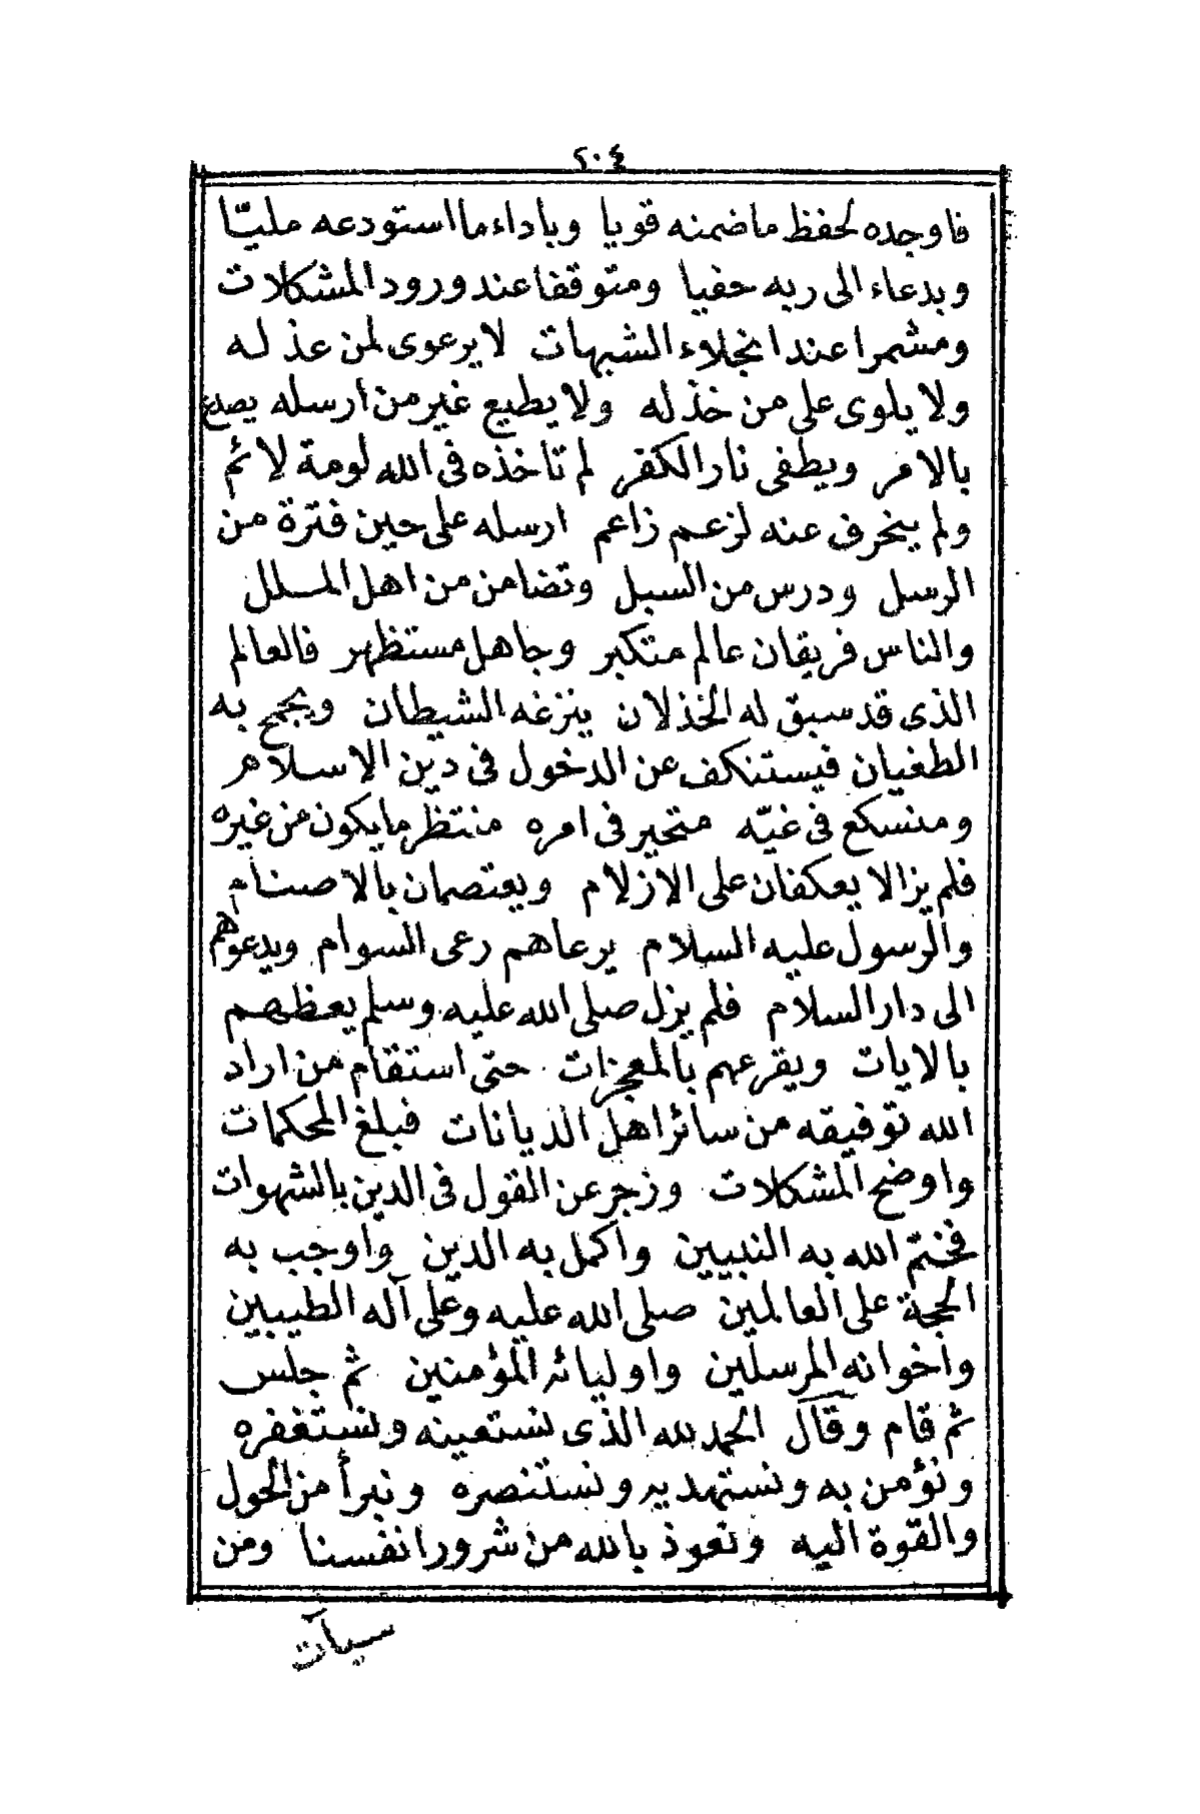 ٢٠٤
فاوجده لحفظ ما ضمنه قويا وباداء ما استودعه مليّا
وبدعاء الى ربه حفيا ومتوقفا عند ورود المشكلات
ومشمرا عند انجلاء الشبهات لا يرعوى لمن عذ له
ولا يلوى على من خذله ولا يطيع غير من ارسله يصدع
بالامر ويطفى نار الكفر لم تاخذه فى الله لومة لائم
ولم ينحرف عنه لزعم زاعم ارسله على حين فترة من
الرسل ودرس من السبل وتضامن من اهل الملل
والناس فريقان عالم متكبر وجاهل مستظهر فالعالم
الذى قد سبق له الخذلان ينزغه الشيطان ويجمح به
الطغيان فيستنكف عن الدخول فى دين الاسلام
ومنسكع فى غيّه متحير فى امره منتظر ما يكون من غيره
فلم يزالا يعكفان على الازلام ويعتصمان بالاصنام
والرسول عليه السلام يرعاهم رعى السوام ويدعوهم
الى دار السلام فلم يزل صلى الله عليه وسلم يعظهم
بالايات ويقرعهم بالمعجزات حتى استقام من اراد
الله توفيقه من سائر اهل الديانات فبلغ المحكمات
واوضح المشكلات وزجر عن القول فى الدين بالشهوات
فختم الله به النبيين واكمل به الدين واوجب به
الحجة على العالمين صلى الله عليه وعلى آله الطيبين
واخوانه المرسلين واوليائه المؤمنين ثم جلس
ثم قام وقال الحمد لله الذى نستعينه ونستغفره
ونؤمن به ونستهديه ونستنصره ونبرأ من الحول
والقوة اليه ونعوذ بالله من شرور انفسنا ومن
سيآت